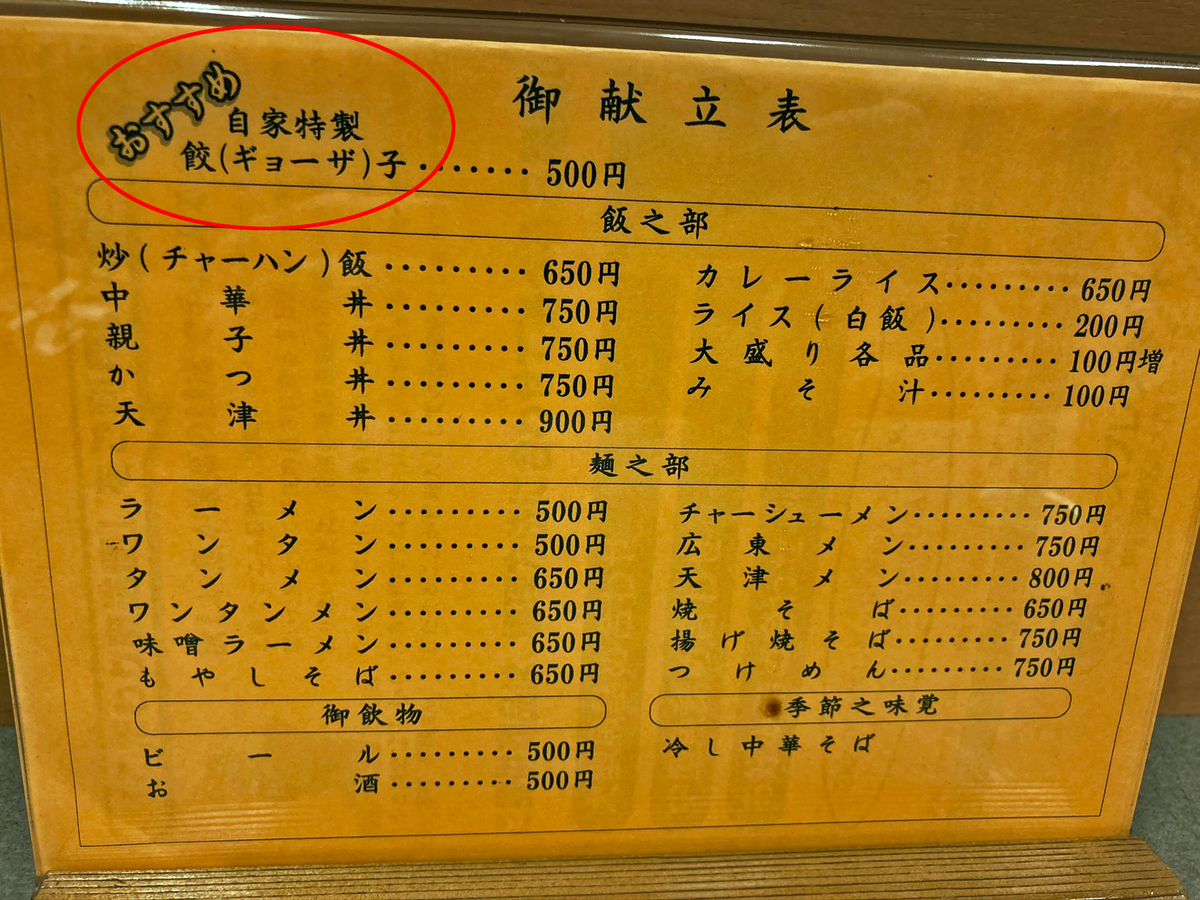 御献立表
おすすめ
自家特製
餃(ギョーザ)子・・・・・・・500円
飯之部
炒(チャーハン)飯・・・・・・・・・650円
中華丼・・・・・・・・・750円
親子丼・・・・・・・・・750円
かつ丼・・・・・・・・・750円
天津丼・・・・・・・・・900円
カレーライス・・・・・・・・・650円
ライス(白飯)・・・・・・・・・200円
大盛り各品・・・・・・・・・100円増
みそ汁・・・・・・・・・100円
麺之部
ラーメン・・・・・・・・・500円
ワンタン・・・・・・・・・500円
タンメン・・・・・・・・・650円
ワンタンメン・・・・・・・・・650円
味噌ラーメン・・・・・・・・・650円
もやしそば・・・・・・・・・650円
チャーシューメン・・・・・・・・・750円
広東メン・・・・・・・・・750円
天津メン・・・・・・・・・800円
焼そば・・・・・・・・・650円
揚げ焼そば・・・・・・・・・750円
つけめん・・・・・・・・・750円
御飲物
ビール・・・・・・・・・500円
お酒・・・・・・・・・500円
季節之味覚
冷し中華そば